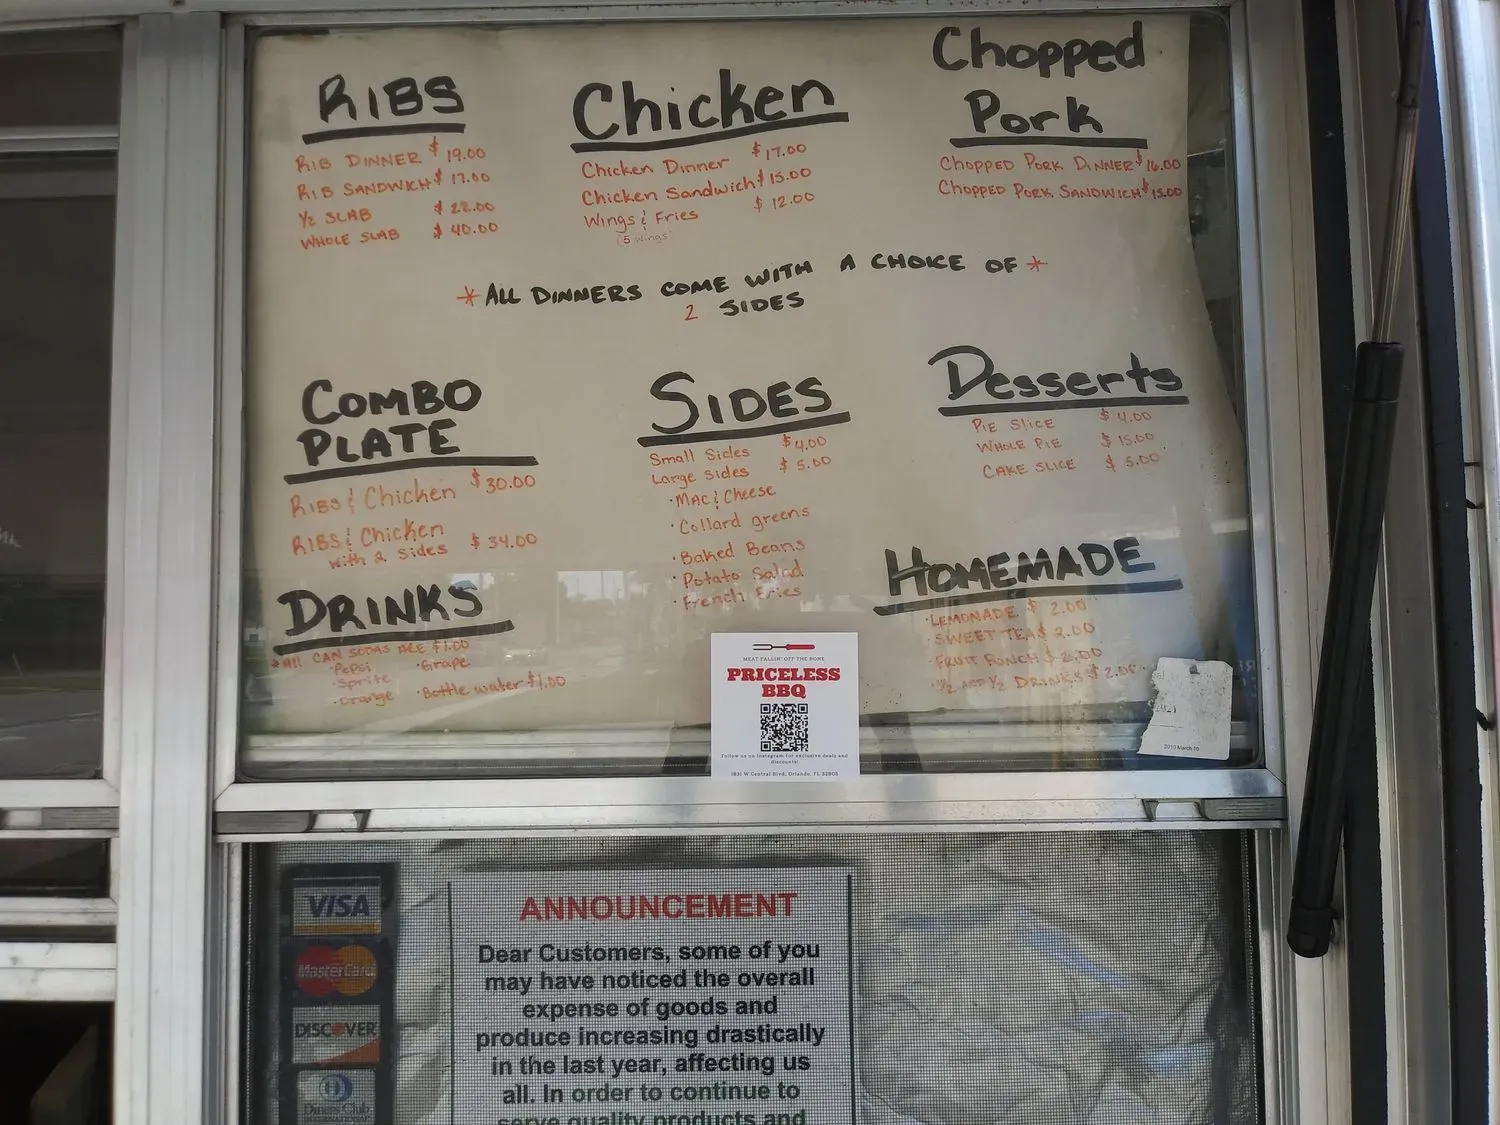 RIBS
RIB DINNER $19.00
RIB SANDWICH $17.00
1/2 SLAB $22.00
WHOLE SLAB $40.00
Chicken
Chicken Dinner $17.00
Chicken Sandwich $15.00
Wings & Fries $12.00
(5 wings)
Chopped
Pork
CHOPPED PORK DINNER $16.00
CHOPPED PORK SANDWICH $15.00
*ALL DINNERS COME WITH A CHOICE OF*
2 SIDES
COMBO
PLATE
RIBS & Chicken $30.00
RIBS & Chicken
with 2 Sides $34.00
SIDES
Small Sides $4.00
Large Sides $5.00
·MAC & Cheese
·Collard greens
·Baked Beans
·Potato Salad
·French Fries
Desserts
PIE SLICE $4.00
WHOLE PIE $15.00
CAKE SLICE $5.00
DRINKS
*All CAN SODAS ARE $1.00
·Pepsi ·Grape
·Sprite
·Orange ·Bottle water $1.00
HOMEMADE
·LEMONADE $2.00
·SWEET TEA $2.00
·FRUIT PUNCH $2.00
·1/2 AND 1/2 DRINKS $2.00
MEAT FALLIN' OFF THE BONE
PRICELESS
BBQ
Follow us on Instagram for exclusive deals and
discounts!
1831 W Central Blvd, Orlando, FL 32805
2021
2010 March 10
VISA
MasterCard
DISCOVER
Diners Club
INTERNATIONAL
ANNOUNCEMENT
Dear Customers, some of you
may have noticed the overall
expense of goods and
produce increasing drastically
in the last year, affecting us
all. In order to continue to
serve quality products and